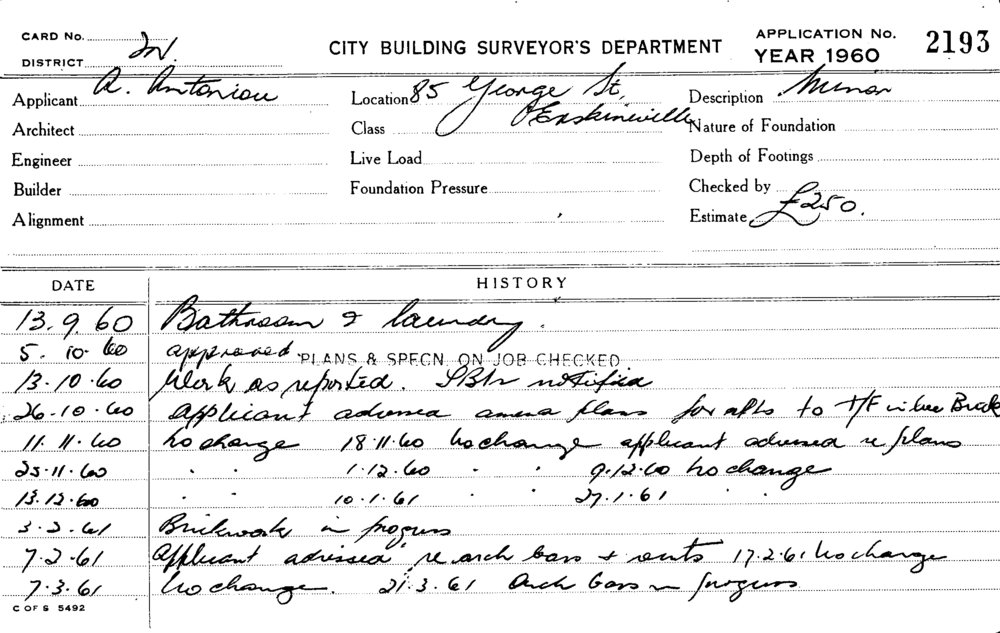 CARD No.
DISTRICT
CITY BUILDING SURVEYOR'S DEPARTMENT
APPLICATION No. 2193
YEAR 1960
Applicant A. Antoniou
Location 85 George St, Erskineville
Description Minor
Architect
Class
Nature of Foundation
Engineer
Live Load
Depth of Footings
Builder
Foundation Pressure
Checked by
Alignment
Estimate £250.
DATE HISTORY
13.9.60 Bathroom & laundry.
5.10.60 approved PLANS & SPECN. ON JOB CHECKED
13.10.60 Work as reported. notified
26.10.60 applicant advised amend plans for alts to T/F in lieu Brick
11.11.60 No change 18.11.60 No change applicant advised re plans
25.11.60 " " 1.12.60 " " 9.12.60 No change
13.12.60 " " 10.1.61 " " 27.1.61 " "
3.2.61 Brickwork in progress
7.2.61 applicant advised re arch bars + vents 17.2.61 No change
7.3.61 No change. 21.3.61 Arch bars in progress
C OF S 5492